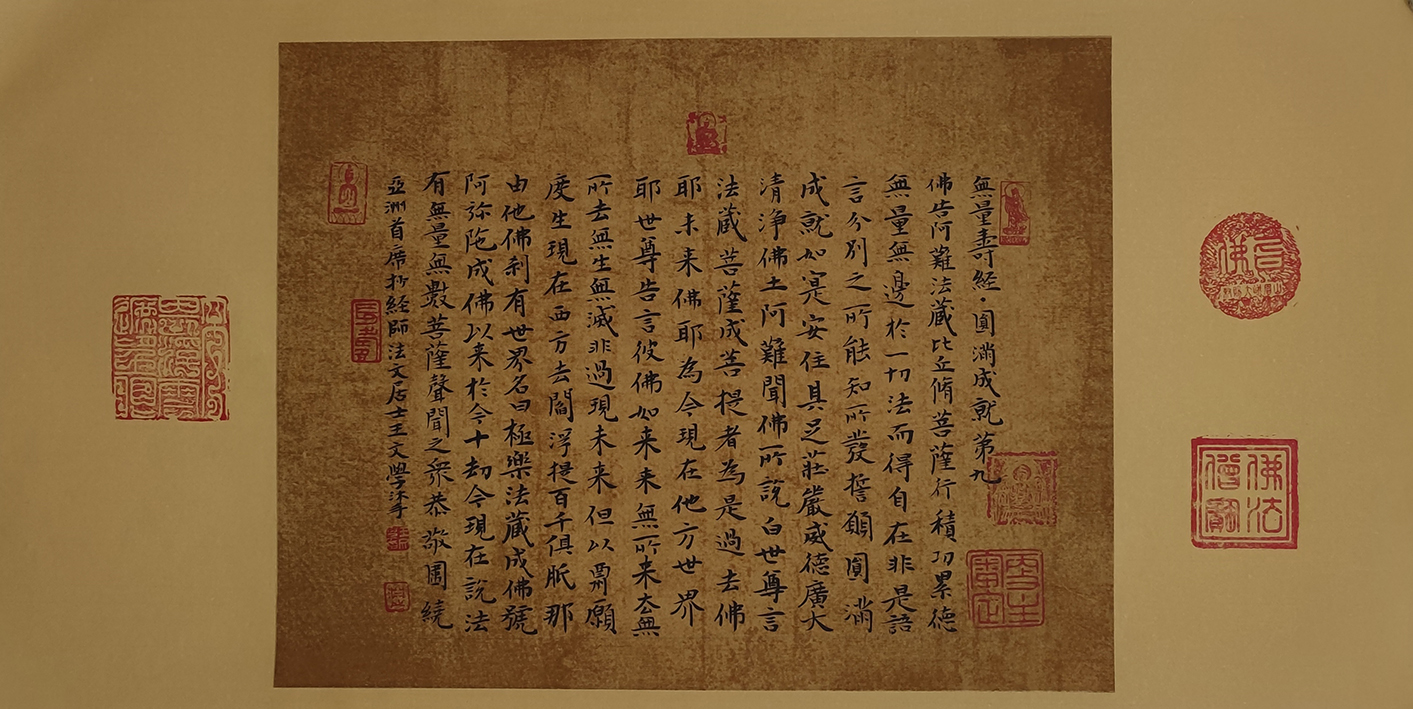 佛法僧寶
無量壽經·圓滿成就第九
佛告阿難法藏比丘脩菩薩行積功累德
無量無邊於一切法而得自在非是語
言分別之所能知所發誓願圓滿
成就如寔安住具足莊嚴威德廣大
清淨佛土阿難聞佛所說白世尊言
法藏菩薩成菩提者為是過去佛
耶未来佛耶為今現在他方世界
耶世尊告言彼佛如来来無所来去無
所去無生無滅非過現未来但以酬願
度生現在西方去閻浮提百千俱胝那
由他佛刹有世界名曰極樂法藏成佛號
阿弥陀成佛以来於今十劫今現在說法
有無量無數菩薩聲聞之衆恭敬圍繞
亞洲首席抄経師法文居士王文學沐手